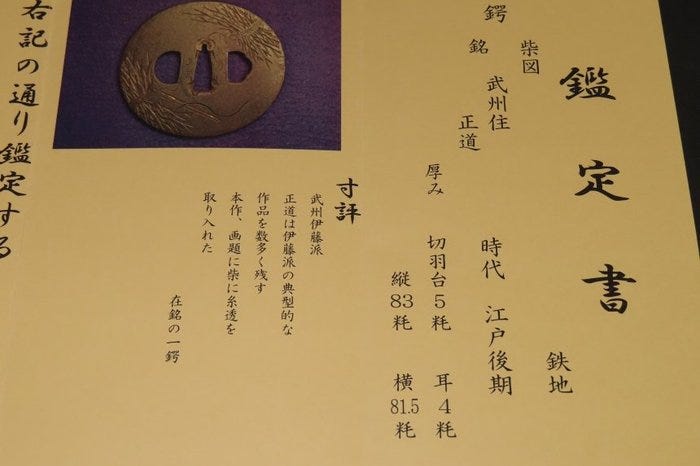 鑑定書
鉄地
柴図
鍔
銘 武州住
正道
時代 江戸後期
厚み
切羽台5粍 耳4粍
縦83粍 横81.5粍
寸評
武州伊藤派
正道は伊藤派の典型的な
作品を数多く残す
本作、画題に柴に糸透を
取り入れた
在銘の一鍔
右記の通り鑑定する